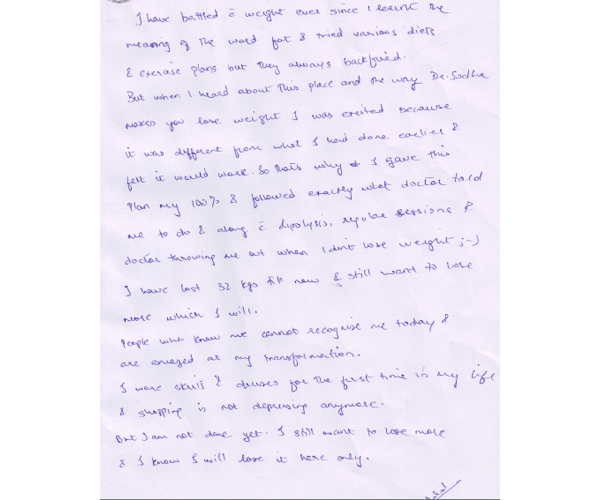 I have battled c̄ weight ever since I learnt the
meaning of the word fat & tried various diets
& exercise plans but they always backfired.
But when I heard about this place and the way Dr. Sodha
makes you lose weight I was excited because
it was different from what I had done earlier &
felt it would work. So thats why I gave this
plan my 100% & followed exactly what doctor told
me to do & along c̄ dipolysis, regular sessions &
doctor throwing me out when I din't lose weight ;-)
I have lost 32 kgs till now & still want to lose
more which I will.
People who know me cannot recognise me today &
are amazed at my transformation.
I wore skirts & dresses for the first time in my life
& shopping is not depressing anymore.
But I am not done yet. I still want to lose more
& I know I will lose it here only.